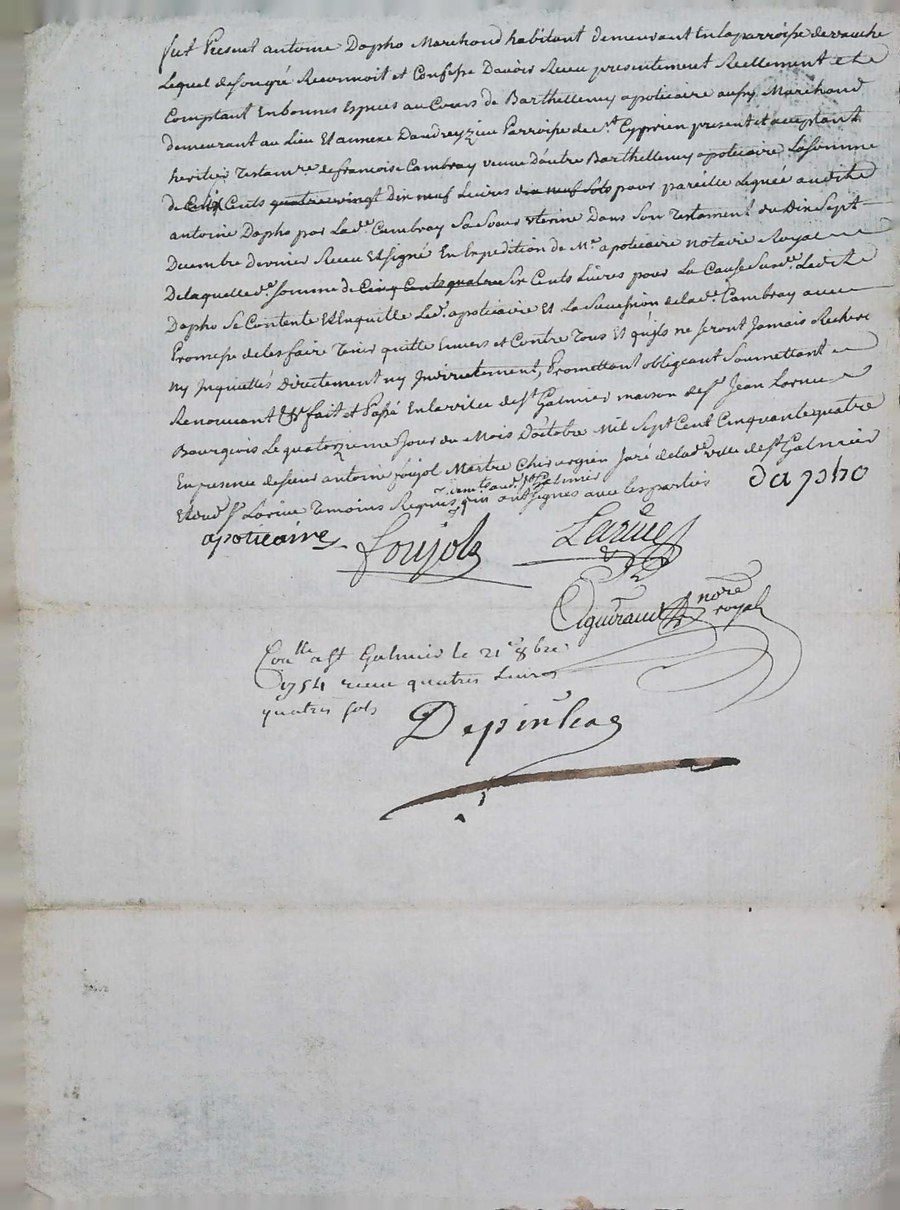 fut Present antoine Dapho Marchand habitant demeurant En la parroisse de
Lequel de son gré Reconnoit et Confesse Davoir Receu presentement Reellement et
Comptant En bonnes Especes au Cours de Barthellemy apoticaire aussy Marchand
demeurant au Lieu Et annexe Dandreyzieu Parroisse de st Cyprien present et acceptant
heritier Testamre de francoise Cambray veuve dautre Barthellemy apoticaire La somme
de Six Cents quatre vingt Dix neuf Livres dix neuf sols pour pareille Leguée audit
antoine Dapho par Lade Cambray Sa Soeur Uterine Dans Son Testament du Dix Sept
Decembre Dernier Receu Et signé En Expedition de Me apoticaire notaire Royal
De laquelle de somme de Cinq Cents quatre Six Cents Livres pour La Cause Susde Ledit
Dapho Se Contente Et En quitte Led. apoticaire Et La Succession de lade Cambray avec
Promesse de les faire Tenir quitte Envers et Contre Tous Et quils ne seront Jamais Recherc
ny Inquiettés Directement ny Indirectement, Promettant obligeant Soumettant
Renoncant &c fait et Passé En la ville de st Galmier maison de sr Jean Larue
Bourgeois Le quatorzieme Jour du Mois Doctobre Mil Sept Cent Cinquante quatre
En presence de sieur antoine foujol Maitre Chirurgien Juré de lade ville de st Galmier
Et dud sr Larue Temoins Requis qui ont signés avec les parties
audt st Galmier
dapho
apoticaire
foujols
Larue
guiraud nore royal
Conlle a st Galmier le 21e 8bre
1754 receu quatres Livres
quatres sols